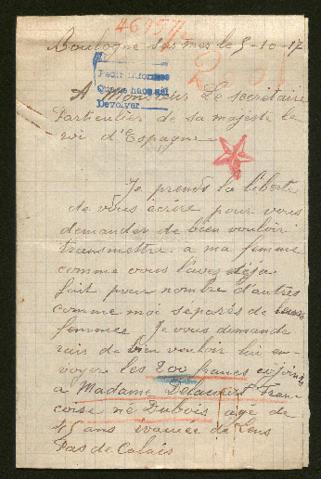 46957
Boulogne sur mer le 5-10-17
Pedir informes
Devolver
A Monsieur Le secrétaire
Particulier de sa majesté le
roi d'Espagne
Je prends la liberté
de vous écrire pour vous
demander de bien vouloir
transmettre a ma femme
comme vous l'avez déja
fait pour nombre d'autres
comme moi séparés de leurs
femmes Je vous demande
rais de bien vouloir lui en-
voyer les 200 francs ci joints
a Madame Delacourt Fran
coise né Dubois agé de
45 ans évacuée de Lens
Pas de Calais